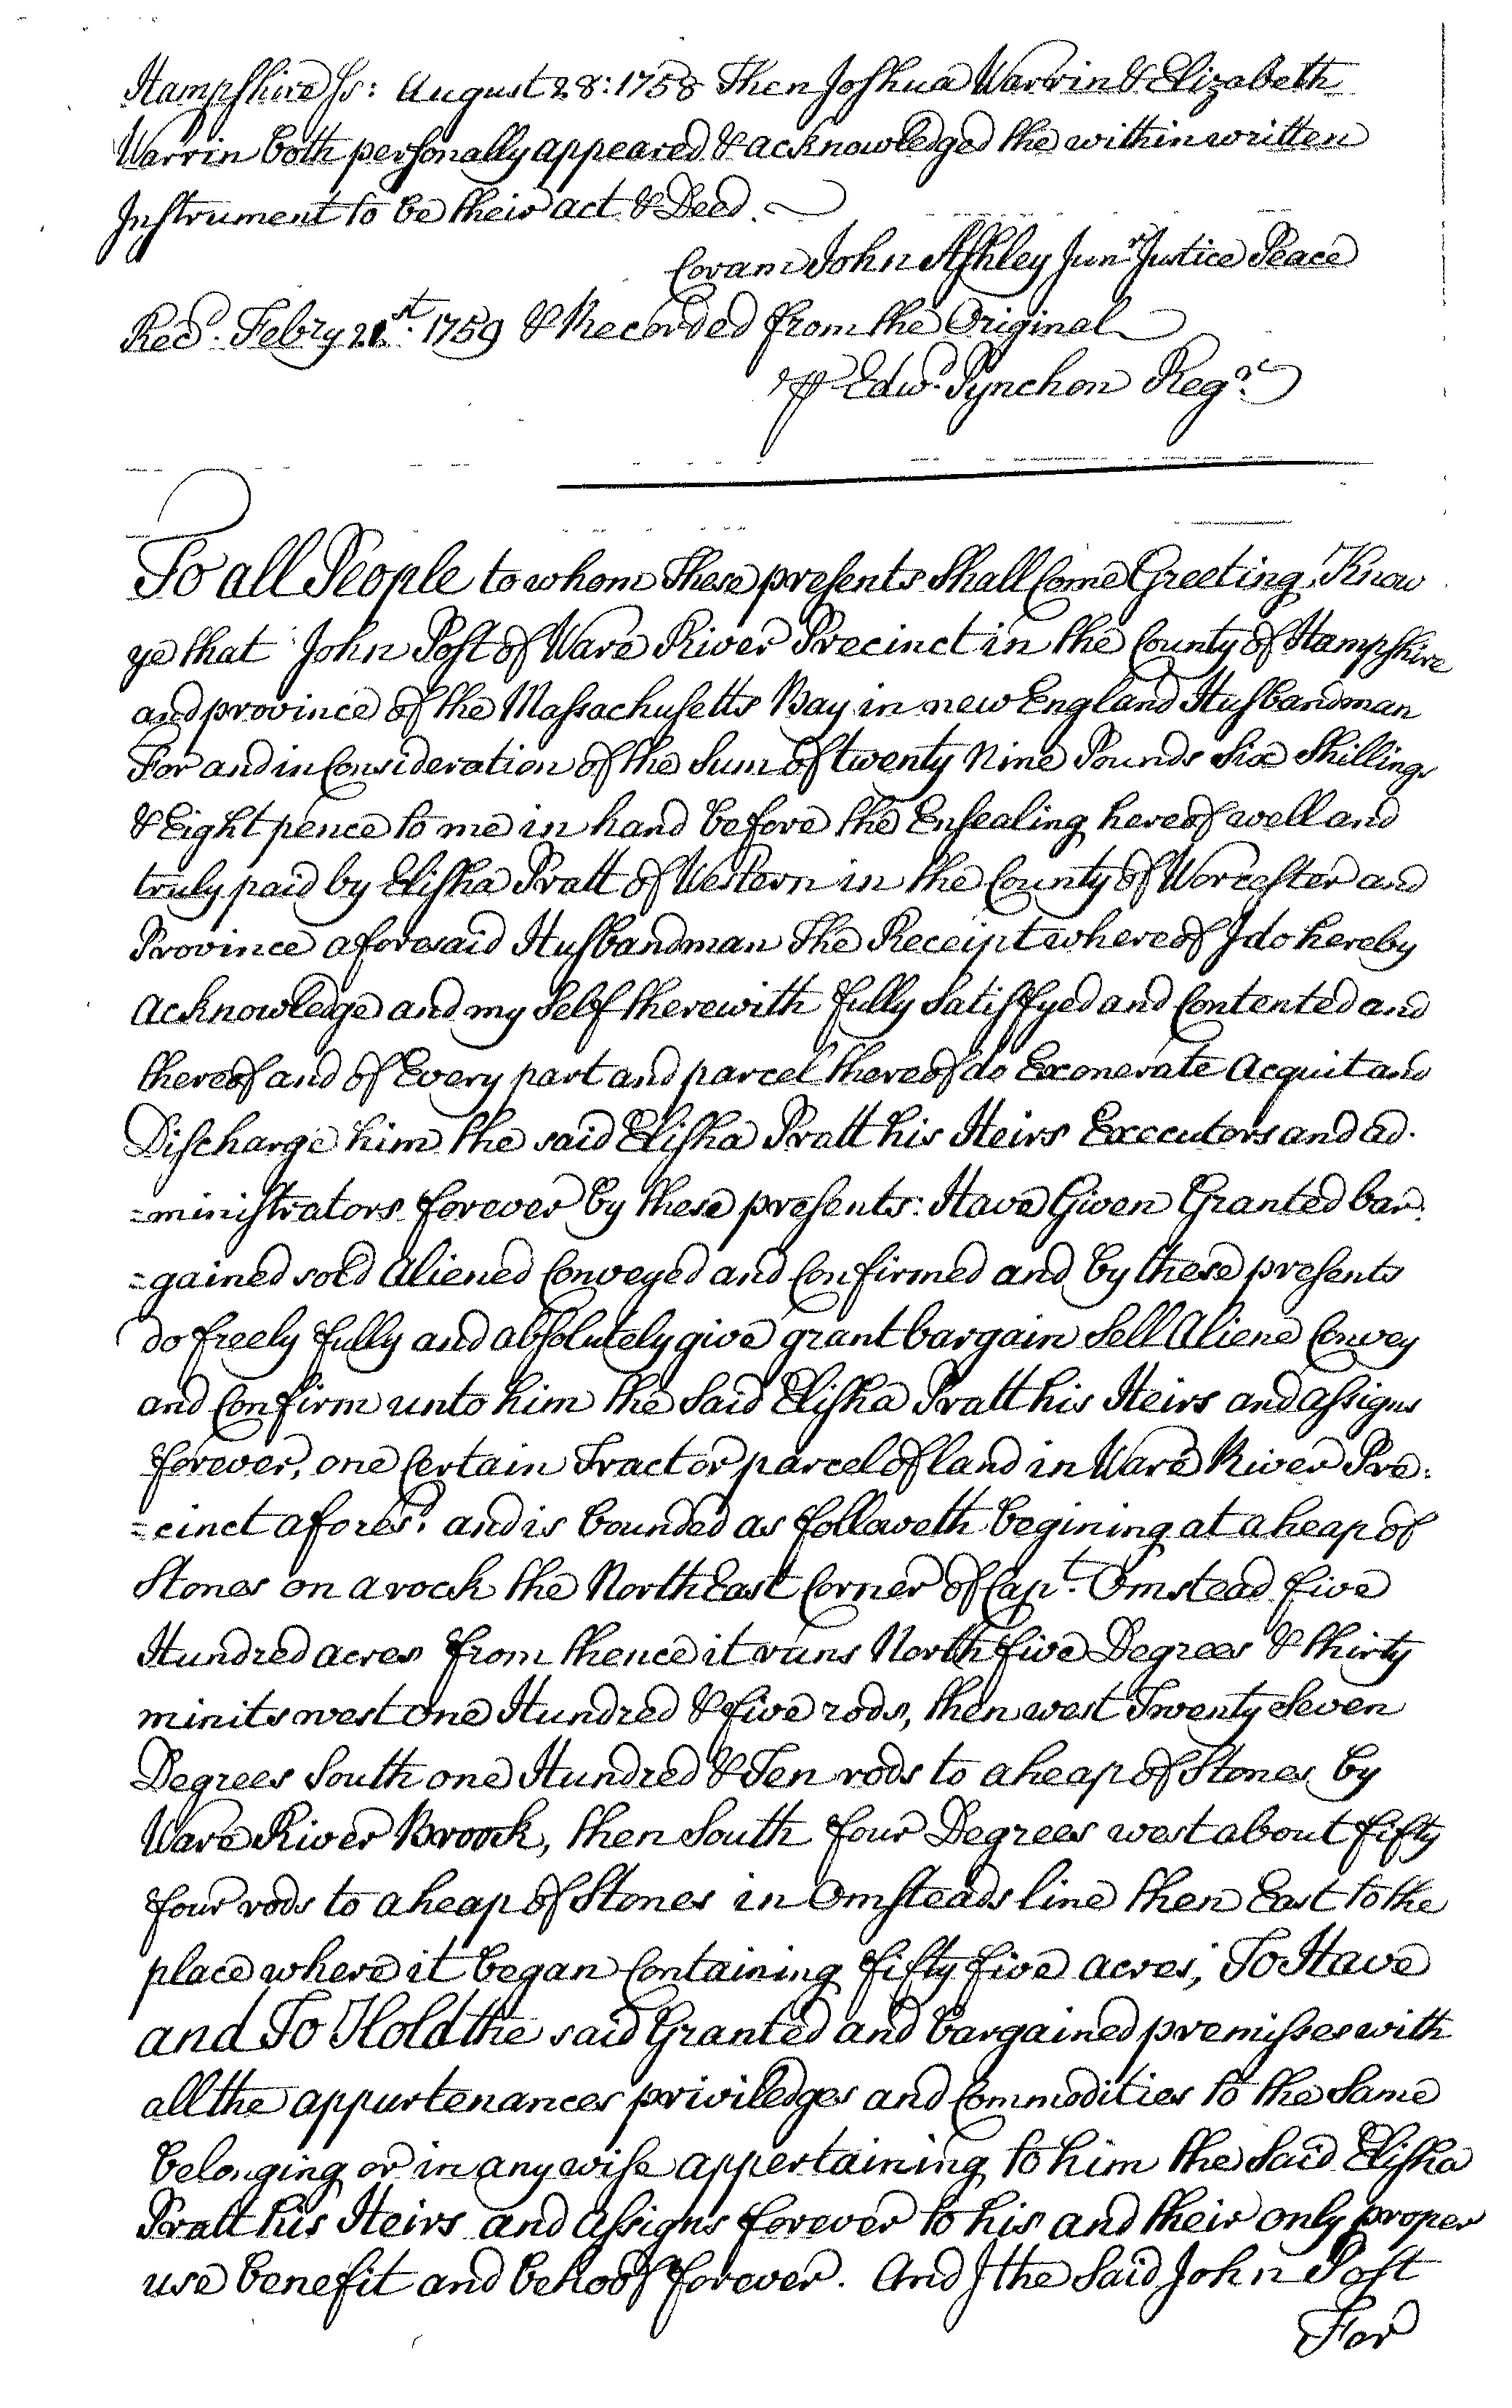 Hampshire ss: August 28: 1758 Then Joshua Warrin & Elizabeth
Warrin both personally appeared & acknowledged the within written
Instrument to be their act & Deed.
Coram John Ashley Junr Justice Peace
Recd. Febry 21st. 1759 & Recorded from the Original
Edwd. Pynchon Regr.
To all People to whom these presents Shall Come Greeting, Know
ye that John Post of Ware River Precinct in the County of Hampshire
and province of the Massachusetts Bay in new England Husbandman
For and in Consideration of the Sum of twenty Nine Pounds Six Shillings
& Eight pence to me in hand before the Ensealing hereof well and
truly paid by Elisha Pratt of Western in the County of Worcester and
Province aforesaid Husbandman The Receipt whereof I do hereby
acknowledge and my Self therewith fully Satisfyed and Contented and
thereof and of Every part and parcel thereof do Exonerate acquit and
Discharge him the said Elisha Pratt his Heirs Executors and ad-
=ministrators forever by these presents: Have Given Granted bar-
=gained sold aliened Conveyed and Confirmed and by these presents
do freely fully and absolutely give grant bargain Sell aliene Convey
and Confirm unto him the Said Elisha Pratt his Heirs and assigns
forever, one Certain Tract or parcel of land in Ware River Pre:
=cinct aforesd. and is bounded as followeth begining at a heap of
Stones on a rock the North East Corner of Capt. Omstead five
Hundred acres from thence it runs North five Degrees & thirty
minits west One Hundred & five rods, then west Twenty Seven
Degrees South one Hundred & Ten rods to a heap of Stones by
Ware River Broock, then South four Degrees west about fifty
four rods to a heap of Stones in Omsteads line then East to the
place where it began Containing fifty five acres; To Have
and To Hold the said Granted and bargained premisses with
all the appurtenances priviledges and Commodities to the Same
belonging or in any wise appertaining to him the Said Elisha
Pratt his Heirs and assigns forever to his and their only proper
use benefit and behoof forever. And I the Said John Post
For